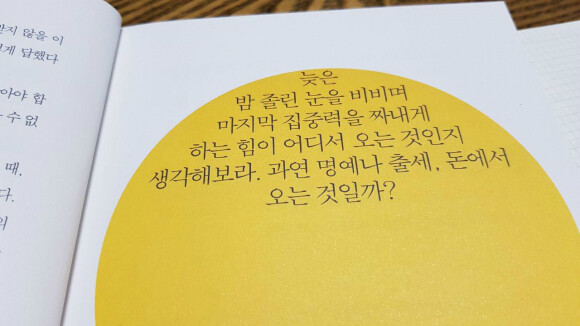 받지 않을 이
게 답했다
아야 합
수 없
때.
다.
의
늦은
밤 졸린 눈을 비비며
마지막 집중력을 짜내게
하는 힘이 어디서 오는 것인지
생각해보라. 과연 명예나 출세, 돈에서
오는 것일까?